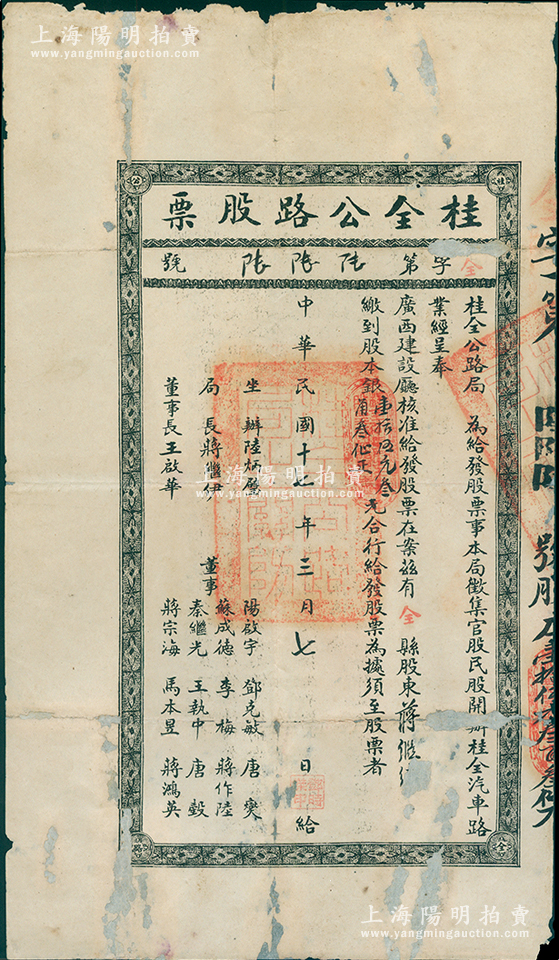 上海陽明拍賣
www.yangmingauction.com
上海陽明拍賣
www.yangmingauction.com
桂全公路股票
全字第 號
桂全公路局 為給發股票事本局徵集官股民股開辦桂全汽車路
業經呈奉
廣西建設廳核准給發股票在案茲有 全 縣股東蔣繼
繳到股本銀壹拾伍元叁角叁仙正 合行給發股票為據須至股票者
中華民國十七年三月七日給
坐辦陸炳
局長蔣繼伊
董事長王啟華
董事
陽啟宇 鄧克敏 唐爕
蘇成德 李梅 蔣作陸
秦繼光 王執中 唐毅
蔣宗海 馬本昱 蔣鴻英
上海陽明拍賣
www.yangmingauction.com
上海陽明拍賣
www.yangmingauction.com